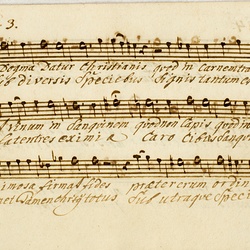 3.
Dogma Datur Christianis quod in Carnem tra
sub diversis Speciebus Signis tantum et
vinum in Sanguinem quod non Capis quod n
Latent res eximiæ Caro Cibus Sangu
imosa firmat fides præter rerum ordi
net tamen Christus totus sub utraque Speci